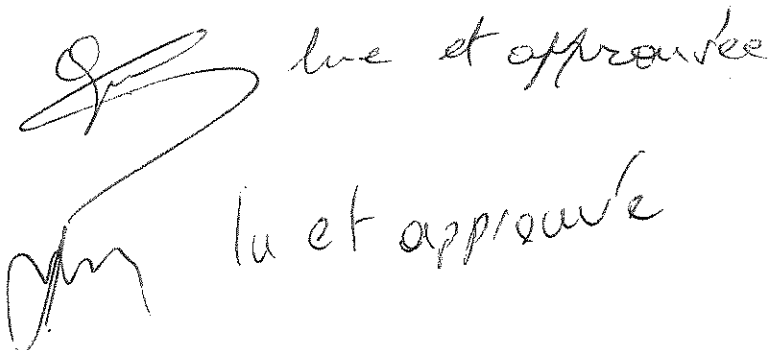 lue et approuvée
lu et approuvé